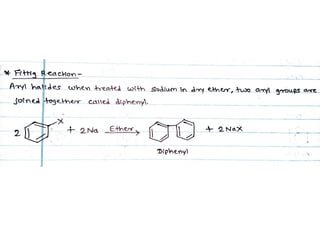 * Fittig Reaction-
Aryl halides when treated with sodium in dry ether, two aryl groups are
joined together called diphenyl.
2 X + 2 Na Ether + 2 NaX
Diphenyl